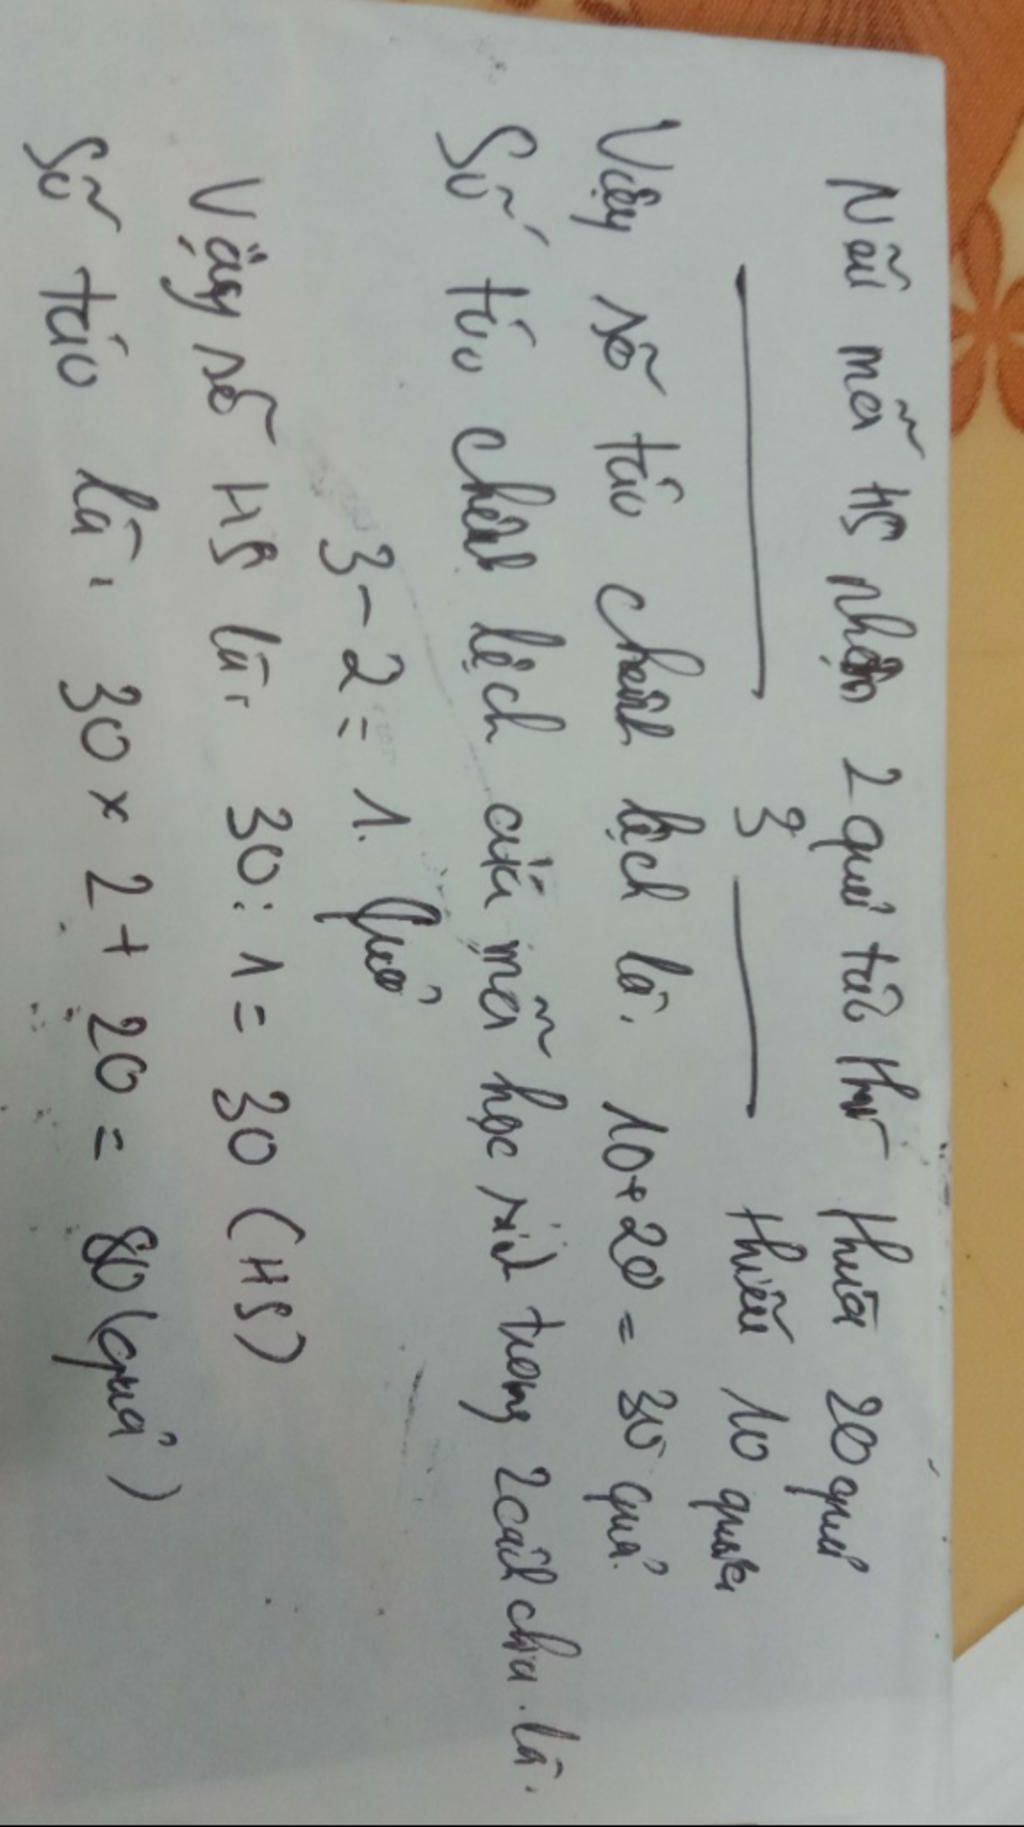 Nếu mỗi HS nhận 2 quả táo thừ thừa 20 quả
——— 3 ——— thiếu 10 quả
Vậy số táo chênh lệch là. 10+20 = 30 quả.
Số táo chênh lệch của mỗi học sinh trong 2 cách chia. là.
3-2 = 1. Quả
Vậy số HS là. 30:1 = 30 (HS)
Số táo là. 30 x 2 + 20 = 80 (quả)